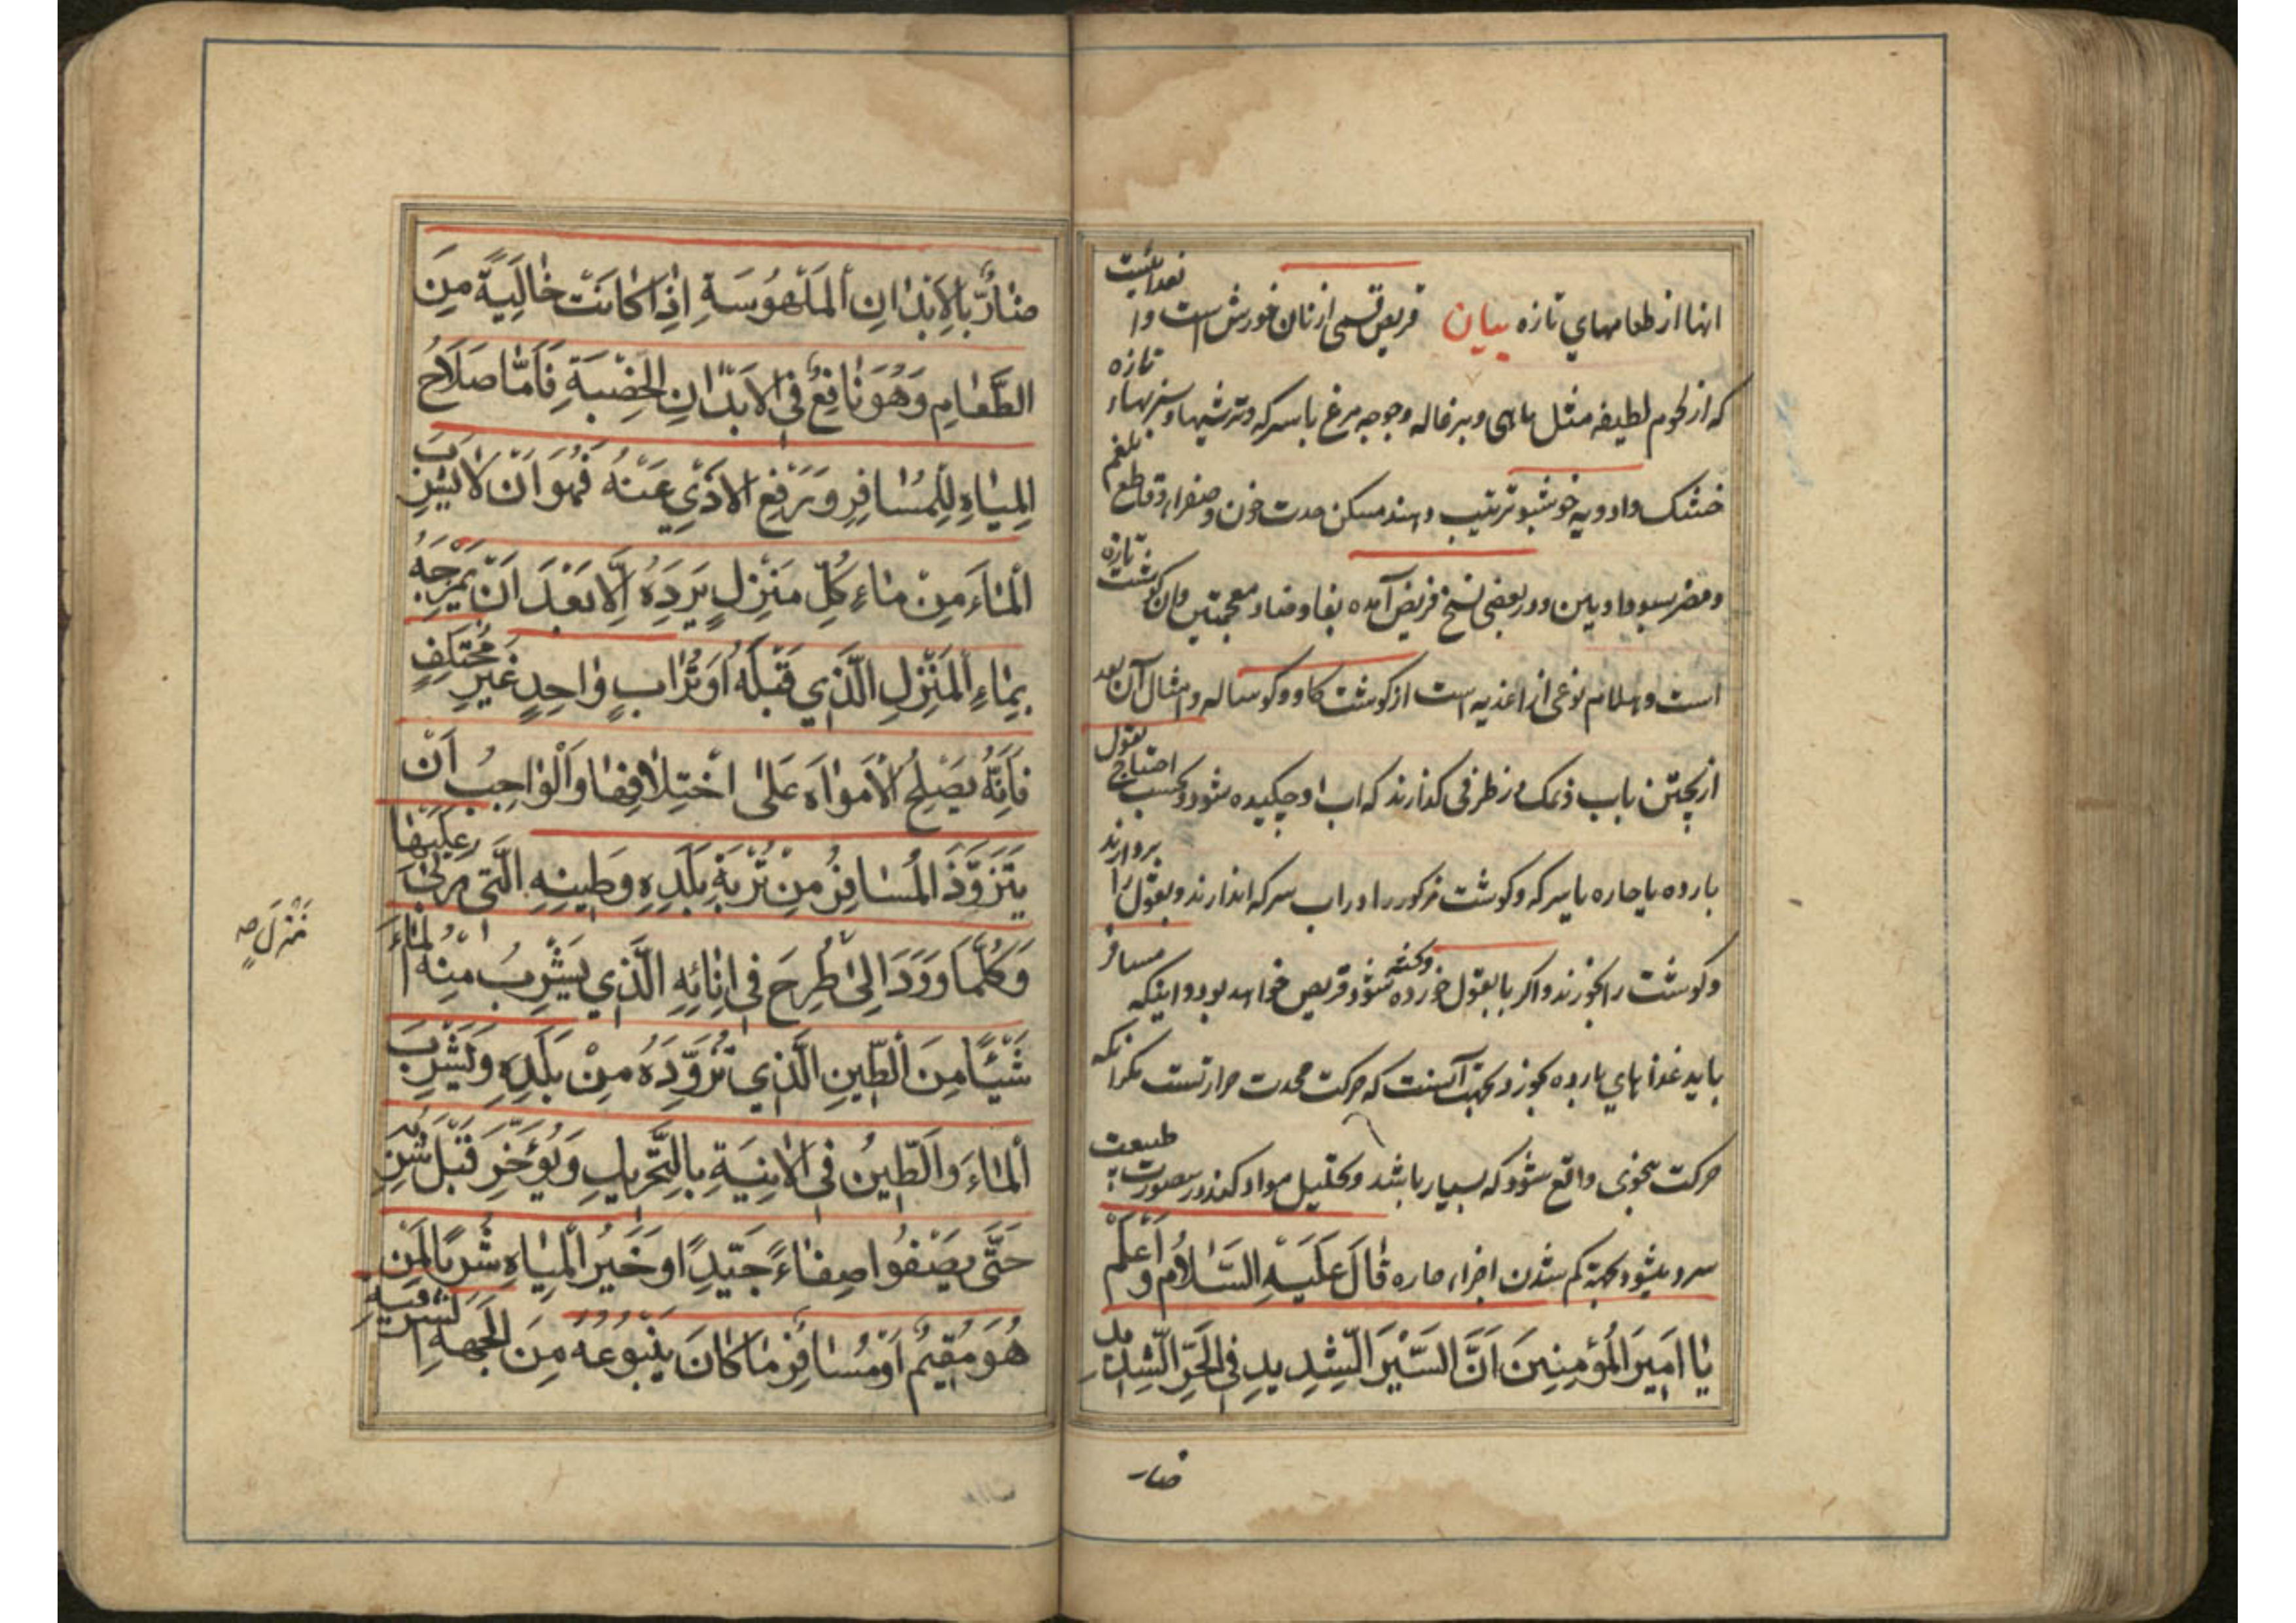 انها از طعامهای تازه بیان قریص قسمی از نان خورش است و از
که از لحوم لطیفه مثل ماهی و بزغاله و جوجه مرغ با سرکه و ترشیها و سبزیهاء تازه
خشک و ادویه خوشبو ترتیب دهند مسکن حدت خون و صفرا و قاطع بلغم
و مضر بسودا و یین و در بعضی نسخ قریض آمده بفا و ضاد معجمتین و ان گوشت تازه
است و هلام نوعی از اغذیه است از گوشت گاو و گوساله و امثال آن بعد
از پختن باب و نمک در ظرفی گذارند که اب او چکیده شود و بحسب احتیاج بقول
بارده یا حاره با سرکه و گوشت مذکور را در اب سرکه اندازند و بقول را بردارند
و گوشت را بخورند و اگر با بقول خورده وکفته شود قریص خواهد بود و اینکه مسافر
باید غذاهای بارده بخورد بجهت آنست که حرکت محدث حرارتست مگر آنکه
حرکت بنحوی واقع شود که بسیار باشد و تحلیل مواد کند در ینصورت طبیعت
سرد میشود بجهة کم شدن اجزاء حاره قَالَ عَلَیْهِ السَّلَامُ وَ اَعْلَمْ
یَا اَمِیرَ الْمُؤْمِنِینَ اَنَّ السَّیْرَ الشَّدِیدِ فِی الْحَرِّ الشَّدِیدِ
ضار
ضَارٌّ بِالْاَبْدَانِ الْمَلْهُوسَةِ اِذَا کَانَتْ خَالِیَةً مِنَ
الطَّعَامِ وَهُوَ نَافِعٌ فِی الْاَبْدَانِ الْخِضْبَةِ فَاَمَّا صَلَاحُ
الْمِیَاهِ لِلْمُسَافِرِ وَرَفْعِ الْاَذَی عَنْهُ فَهُوَ اَنْ لَا یَشْرَبَ
الْمَاءَ مِنْ مَاءِ کُلِّ مَنْزِلٍ یَرِدَهُ اِلَّا بَعْدَ اَنْ یَمْزِجَهُ
بِمَاءِ الْمَنْزِلِ الَّذِی قَبْلَهُ اَوْ تُرَابٍ وَاحِدٍ غَیْرِ مُخْتَلِفٍ
فَاِنَّهُ یَصْلِحُ الْاَمْوَاهَ عَلَی اخْتِلَافِهَا وَالْوَاجِبُ اَنْ
یَتَزَوَّدَ الْمُسَافِرُ مِنْ تُرْبَةِ بَلَدِهِ وَطِینِهِ الَّتِی رُبِّیَ عَلَیْهَا
وَکُلَّمَا وَرَدَ اِلَی طُرِحَ فِی اِنَائِهِ الَّذِی یَشْرِبُ مِنْهُ الْمَاءَ
مَنْزِلٍ صح
شَیْئًا مِنَ الطِّینِ الَّذِی تُزَوِّدَهُ مِنْ بَلَدِهِ وَیَشْرِبَ
الْمَاءَ وَالطِّینُ فِی الْاٰنِیَةِ بِالتَّحْرِیکِ وَیُؤَخِّرَ قَبْلَ شُرْبِهِ
حَتَّی یَصْفُوا صِفَاءً جَیِّدًا وَخَیْرُ الْمِیَاهِ شُرْبًا لِمَنْ
هُوَ مُقِیمٌ اَوْ مُسَافِرٌ مَا کَانَ یَنْبُوعُهُ مِنَ الْجِهَةِ الْمَشْرِقِیَّةِ